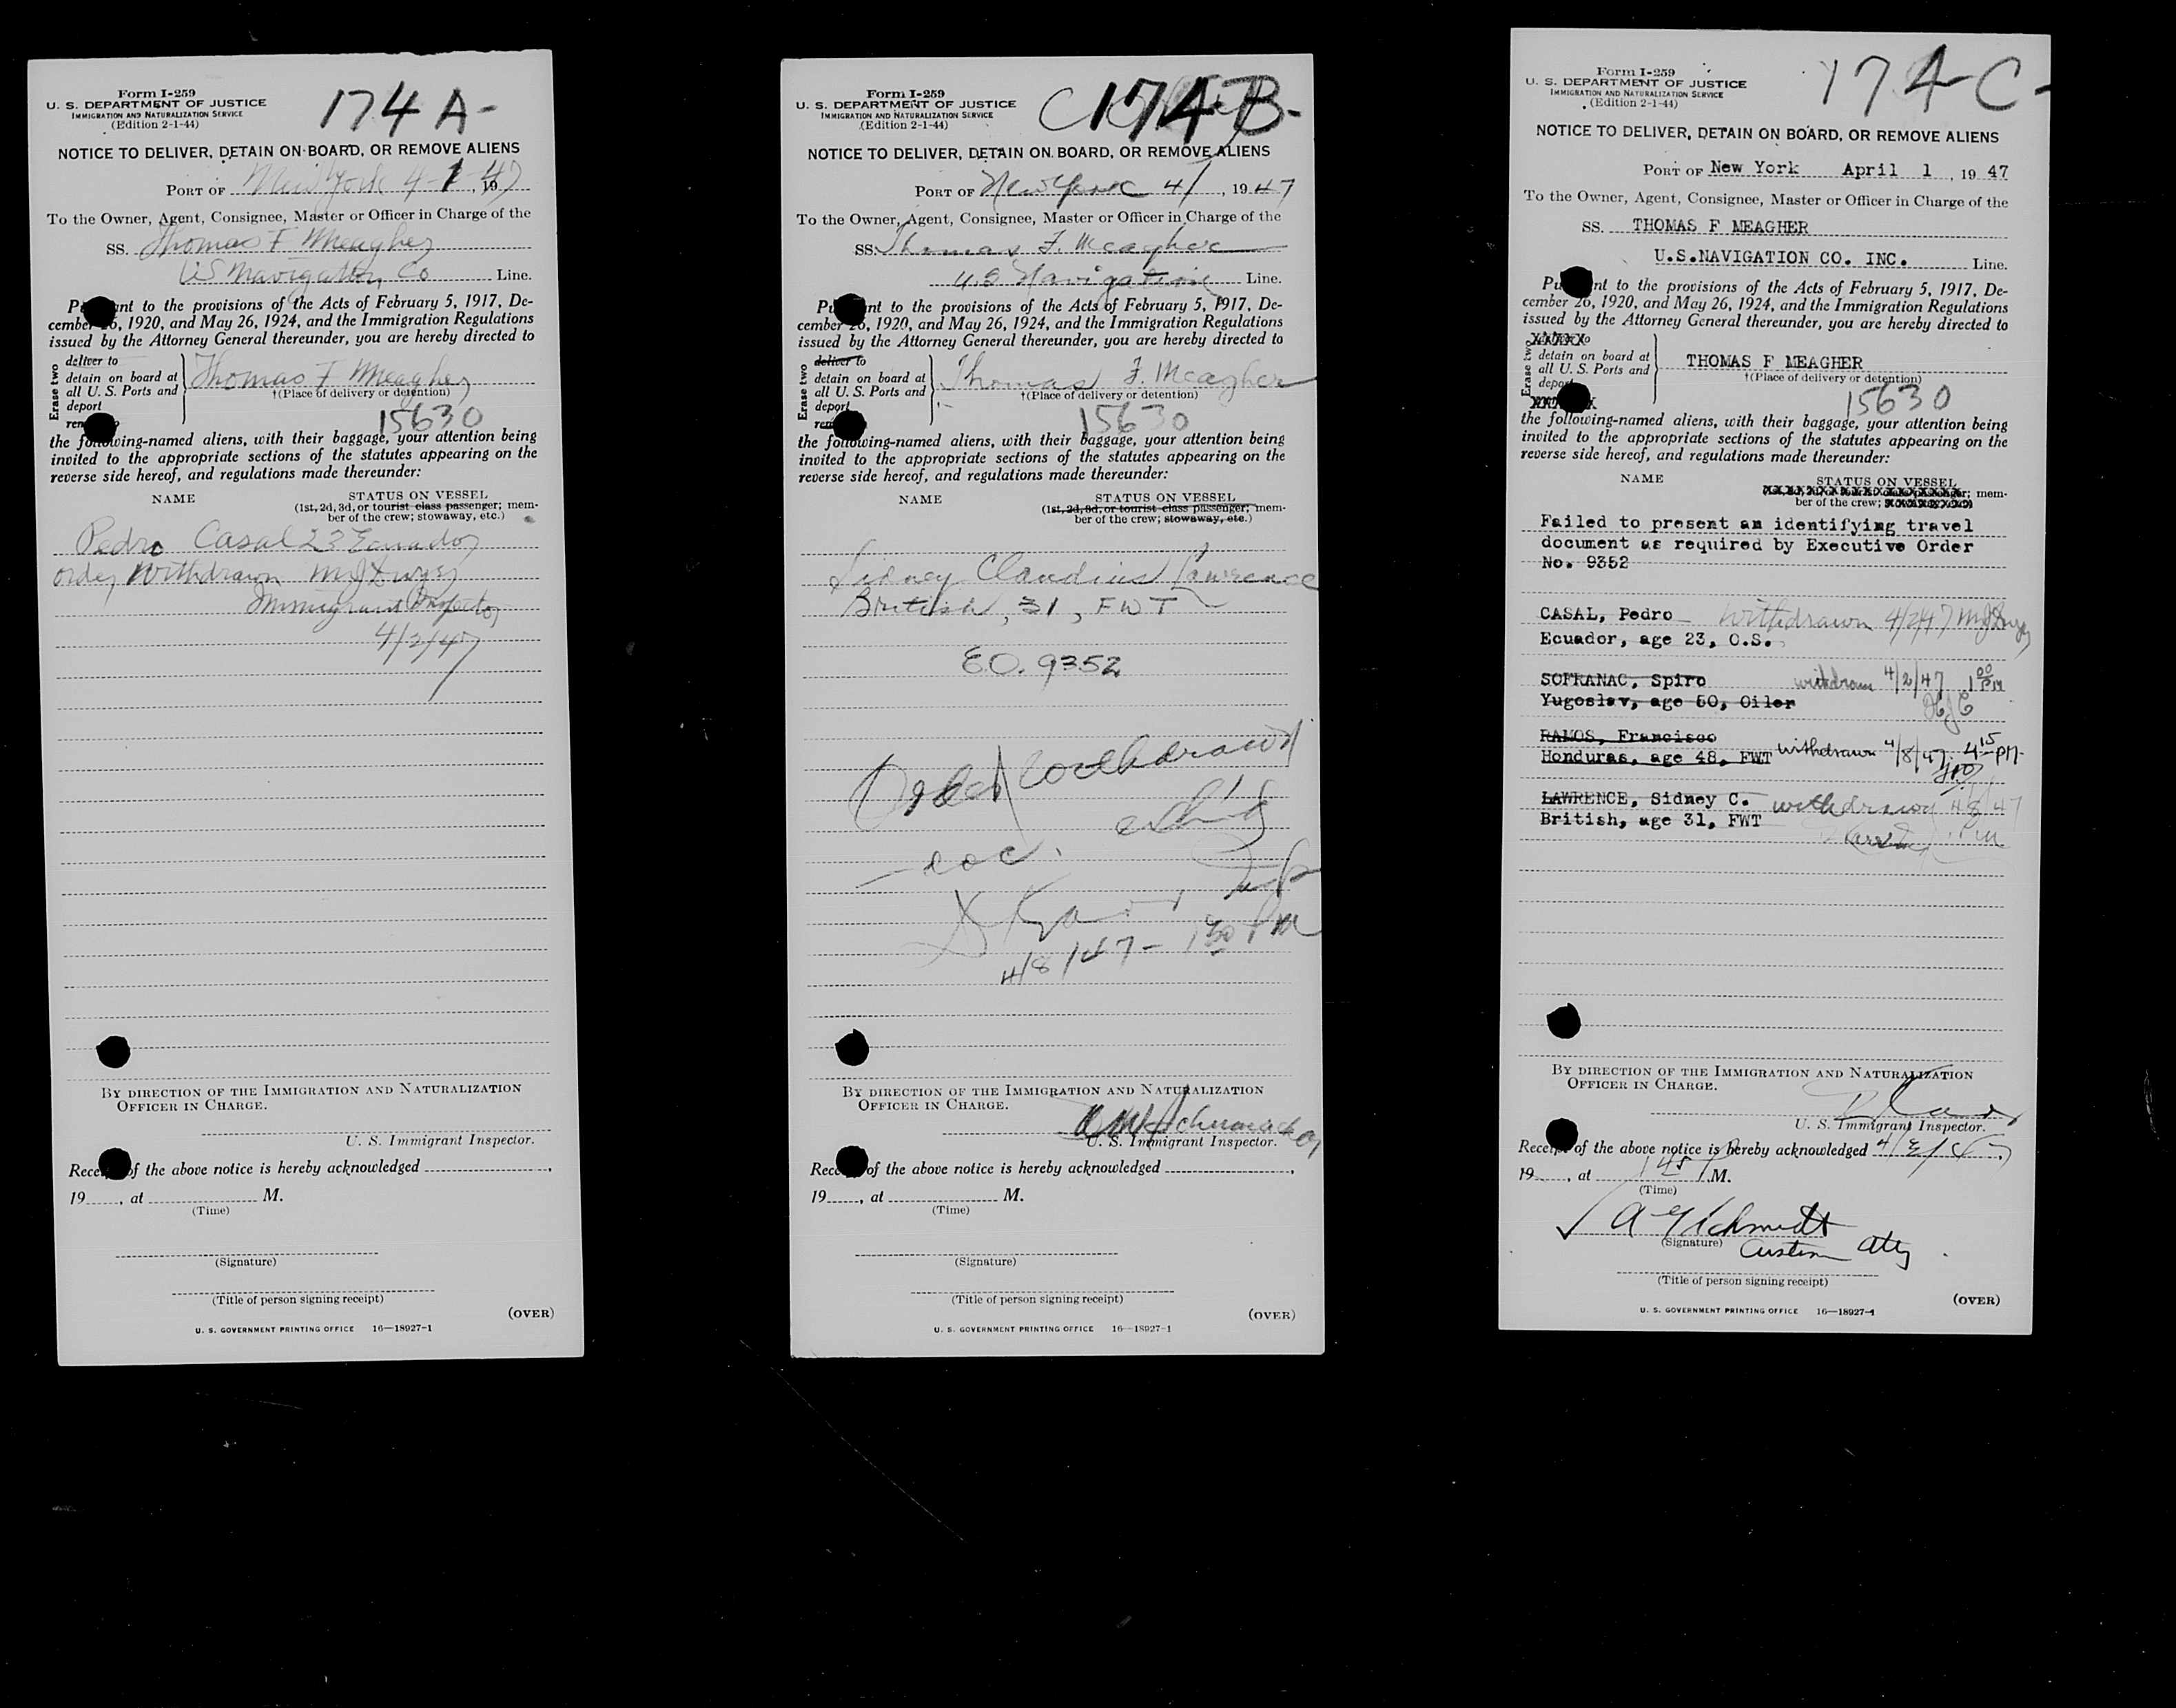 Form I-259
U. S. DEPARTMENT OF JUSTICE
IMMIGRATION AND NATURALIZATION SERVICE
(Edition 2-1-44)
174 A-
NOTICE TO DELIVER, DETAIN ON BOARD, OR REMOVE ALIENS
PORT OF New York 4-1-47, 19
To the Owner, Agent, Consignee, Master or Officer in Charge of the
SS. Thomas F Meagher
US Navigation Co Line.
nt to the provisions of the Acts of February 5, 1917, De-
cember 6, 1920, and May 26, 1924, and the Immigration Regulations
issued by the Attorney General thereunder, you are hereby directed to
Erase two
deliver to
detain on board at
all U. S. Ports and
deport
Thomas F Meagher
†(Place of delivery or detention)
15630
the following-named aliens, with their baggage, your attention being
invited to the appropriate sections of the statutes appearing on the
reverse side hereof, and regulations made thereunder:
NAME STATUS ON VESSEL
(1st, 2d, 3d, or tourist class passenger; mem-
ber of the crew; stowaway, etc.)
Pedro Casal 23 Ecuador
order Withdrawn MJ Dwyer
Immigrant Inspector
4/2/47
BY DIRECTION OF THE IMMIGRATION AND NATURALIZATION
OFFICER IN CHARGE.
U. S. Immigrant Inspector.
Receipt of the above notice is hereby acknowledged ,
19 , at M.
(Time)
(Signature)
(Title of person signing receipt)
(OVER)
U. S. GOVERNMENT PRINTING OFFICE 16—18927-1
Form I-259
U. S. DEPARTMENT OF JUSTICE
IMMIGRATION AND NATURALIZATION SERVICE
(Edition 2-1-44)
174-B-
NOTICE TO DELIVER, DETAIN ON BOARD, OR REMOVE ALIENS
PORT OF New York 4/1, 1947
To the Owner, Agent, Consignee, Master or Officer in Charge of the
SS. Thomas F. Meagher
U.S Navigation Line.
nt to the provisions of the Acts of February 5, 1917, De-
cember 26, 1920, and May 26, 1924, and the Immigration Regulations
issued by the Attorney General thereunder, you are hereby directed to
Erase two
deliver to
detain on board at
all U. S. Ports and
deport
Thomas F. Meagher
†(Place of delivery or detention)
15630
the following-named aliens, with their baggage, your attention being
invited to the appropriate sections of the statutes appearing on the
reverse side hereof, and regulations made thereunder:
NAME STATUS ON VESSEL
(1st, 2d, 3d, or tourist class passenger; mem-
ber of the crew; stowaway, etc.)
Sidney Claudius Lawrence
British, 31, FWT
E.O. 9352
Order withdrawn
4/8/47- 1 30 PM
BY DIRECTION OF THE IMMIGRATION AND NATURALIZATION
OFFICER IN CHARGE.
U. S. Immigrant Inspector.
Receipt of the above notice is hereby acknowledged ,
19 , at M.
(Time)
(Signature)
(Title of person signing receipt)
(OVER)
U. S. GOVERNMENT PRINTING OFFICE 16—18927-1
Form I-259
U. S. DEPARTMENT OF JUSTICE
IMMIGRATION AND NATURALIZATION SERVICE
(Edition 2-1-44)
174-C-
NOTICE TO DELIVER, DETAIN ON BOARD, OR REMOVE ALIENS
PORT OF New York April 1, 19 47
To the Owner, Agent, Consignee, Master or Officer in Charge of the
SS. THOMAS F MEAGHER
U.S.NAVIGATION CO. INC. Line.
nt to the provisions of the Acts of February 5, 1917, De-
cember 26, 1920, and May 26, 1924, and the Immigration Regulations
issued by the Attorney General thereunder, you are hereby directed to
Erase two
detain on board at
all U. S. Ports and
deport
THOMAS F MEAGHER
†(Place of delivery or detention)
15630
the following-named aliens, with their baggage, your attention being
invited to the appropriate sections of the statutes appearing on the
reverse side hereof, and regulations made thereunder:
NAME STATUS ON VESSEL
mem-
ber of the crew;
Failed to present an identifying travel
document as required by Executive Order
No. 9352
CASAL, Pedro Withdrawn 4/2/47 MJ Dwyer
Ecuador, age 23, O.S.
SOFRANAC, Spiro withdrawn 4/2/47 1 00 PM
Yugoslav, age 50, Oiler
RAMOS, Francisco
Honduras, age 48, FWT withdrawn 4/8/47 4 15 PM
LAWRENCE, Sidney C. withdrawn 4/8/47
British, age 31, FWT
BY DIRECTION OF THE IMMIGRATION AND NATURALIZATION
OFFICER IN CHARGE.
U. S. Immigrant Inspector.
Receipt of the above notice is hereby acknowledged 4/2/47,
19 , at 1 45 P.M.
(Time)
A Schmidt
(Signature)
Custom Atty
(Title of person signing receipt)
(OVER)
U. S. GOVERNMENT PRINTING OFFICE 16—18927-1